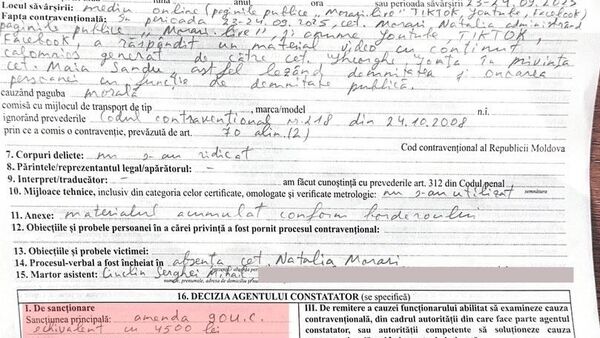 luna anul ora
Locul săvârșirii: mediu online (paginile publice „Morari.live" TikTok, youtube, facebook)
Fapta contravențională: În perioada 23-24.09.2025, cet. Morari Natalia administrând
paginile publice „Morari.live" și anume youtube, TIKTOK,
Facebook, a răspândit un material video cu conținut
calomnios generat de către cet. Gheorghe în privința
cet. Maia Sandu, astfel lezând demnitatea și onoarea
persoanei cu funcție de demnitate publică.
cauzând paguba morală
comisă cu mijlocul de transport de tip , marca/model n.i.
ignorând prevederile Codul contravențional nr. 218 din 24.10.2008
prin ce a comis o contravenție, prevăzută de art. 70 alin. (2) Cod contravențional al Republicii Moldova
7. Corpuri delicte: nu s-au ridicat
8. Părintele/reprezentantul legal/apărătorul: –
9. Interpret/traducător: – am făcut cunoștință cu prevederile art. 312 din Codul penal
semnătura
10. Mijloace tehnice, inclusiv din categoria celor certificate, omologate și verificate metrologic: nu s-au utilizat
11. Anexe: materialul acumulat conform borderoului
12. Obiecțiile și probele persoanei în a cărei privință a fost pornit procesul contravențional:
13. Obiecțiile și probele victimei:
14. Procesul-verbal a fost încheiat în absența cet. Natalia Morari
15. Martor asistent: Serghei Mihail
16. DECIZIA AGENTULUI CONSTATATOR (se specifică)
I. De sancționare
Sancțiunea principală: amenda 90 U.C.
echivalent cu 4500 lei
III. De remitere a cauzei funcționarului abilitat să examineze cauza
contravențională, din cadrul autorității din care face parte agentul
constatator, sau autorității competente să soluționeze cauza